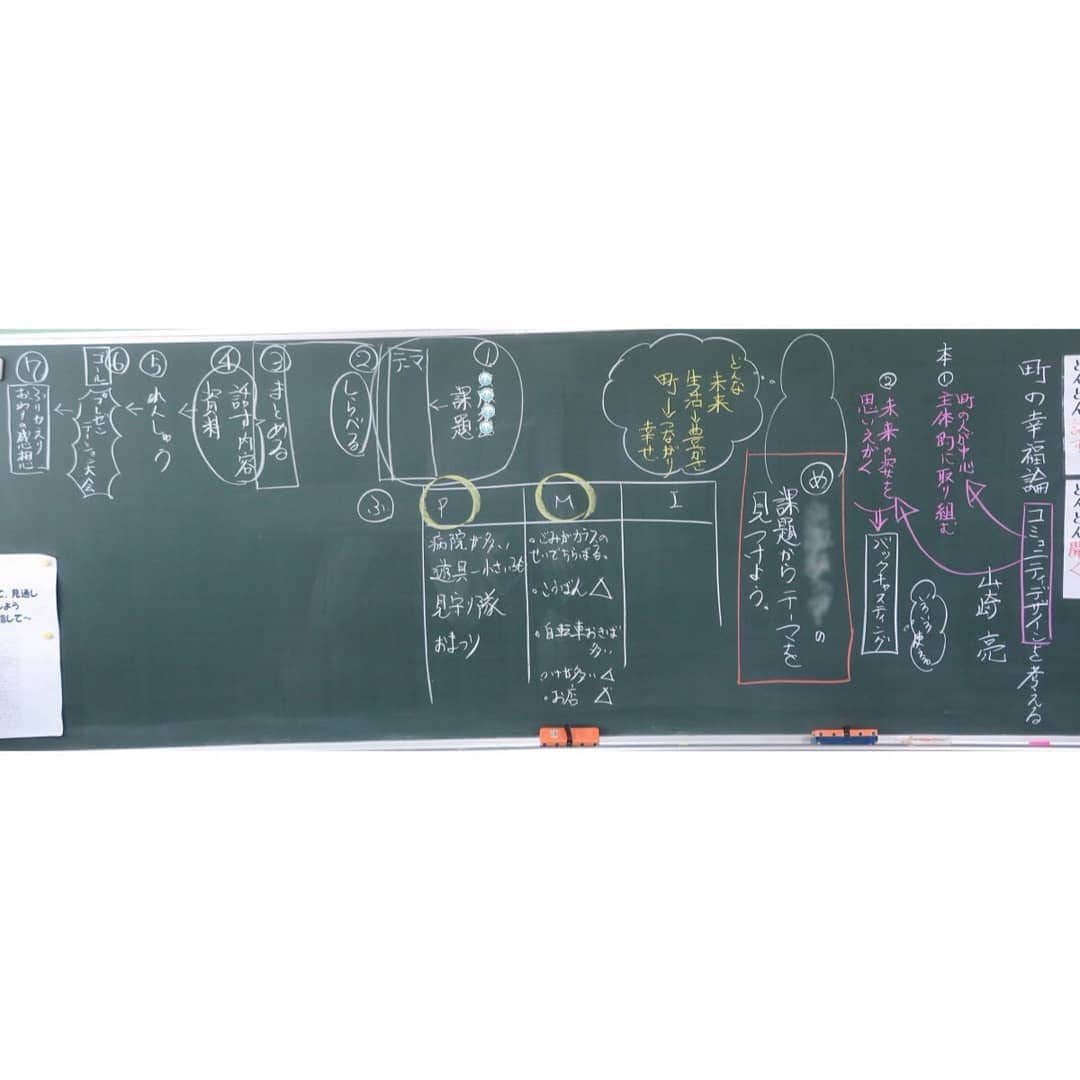 町の幸福論
コミュニティデザインを考える
山崎 亮
本
① 町の人が中心
主体的に取り組む
② 未来の姿を
思いえがく
バックキャスティング
いろいろ
め
の
課題からテーマを
見つけよう。
どんな
未来
生活→豊かさ
町→つながり
幸せ
P
M
I
病院が多い
遊具→小さい子も
見守り隊
おまつり
・ごみがカラスの
せいでちらばる。
・こうばん△
・自転車おきば
多い
・お店 △
ふ
① 課題
テーマ
② しらべる
③ まとめる
④ 話す内容
資料
⑤ れんしゅう
⑥ ゴール
プレゼンテーション大会
⑦ ふりかえり
おわりの感想
どんどん
どんどん
開く
て、見通し
しよう
信して～